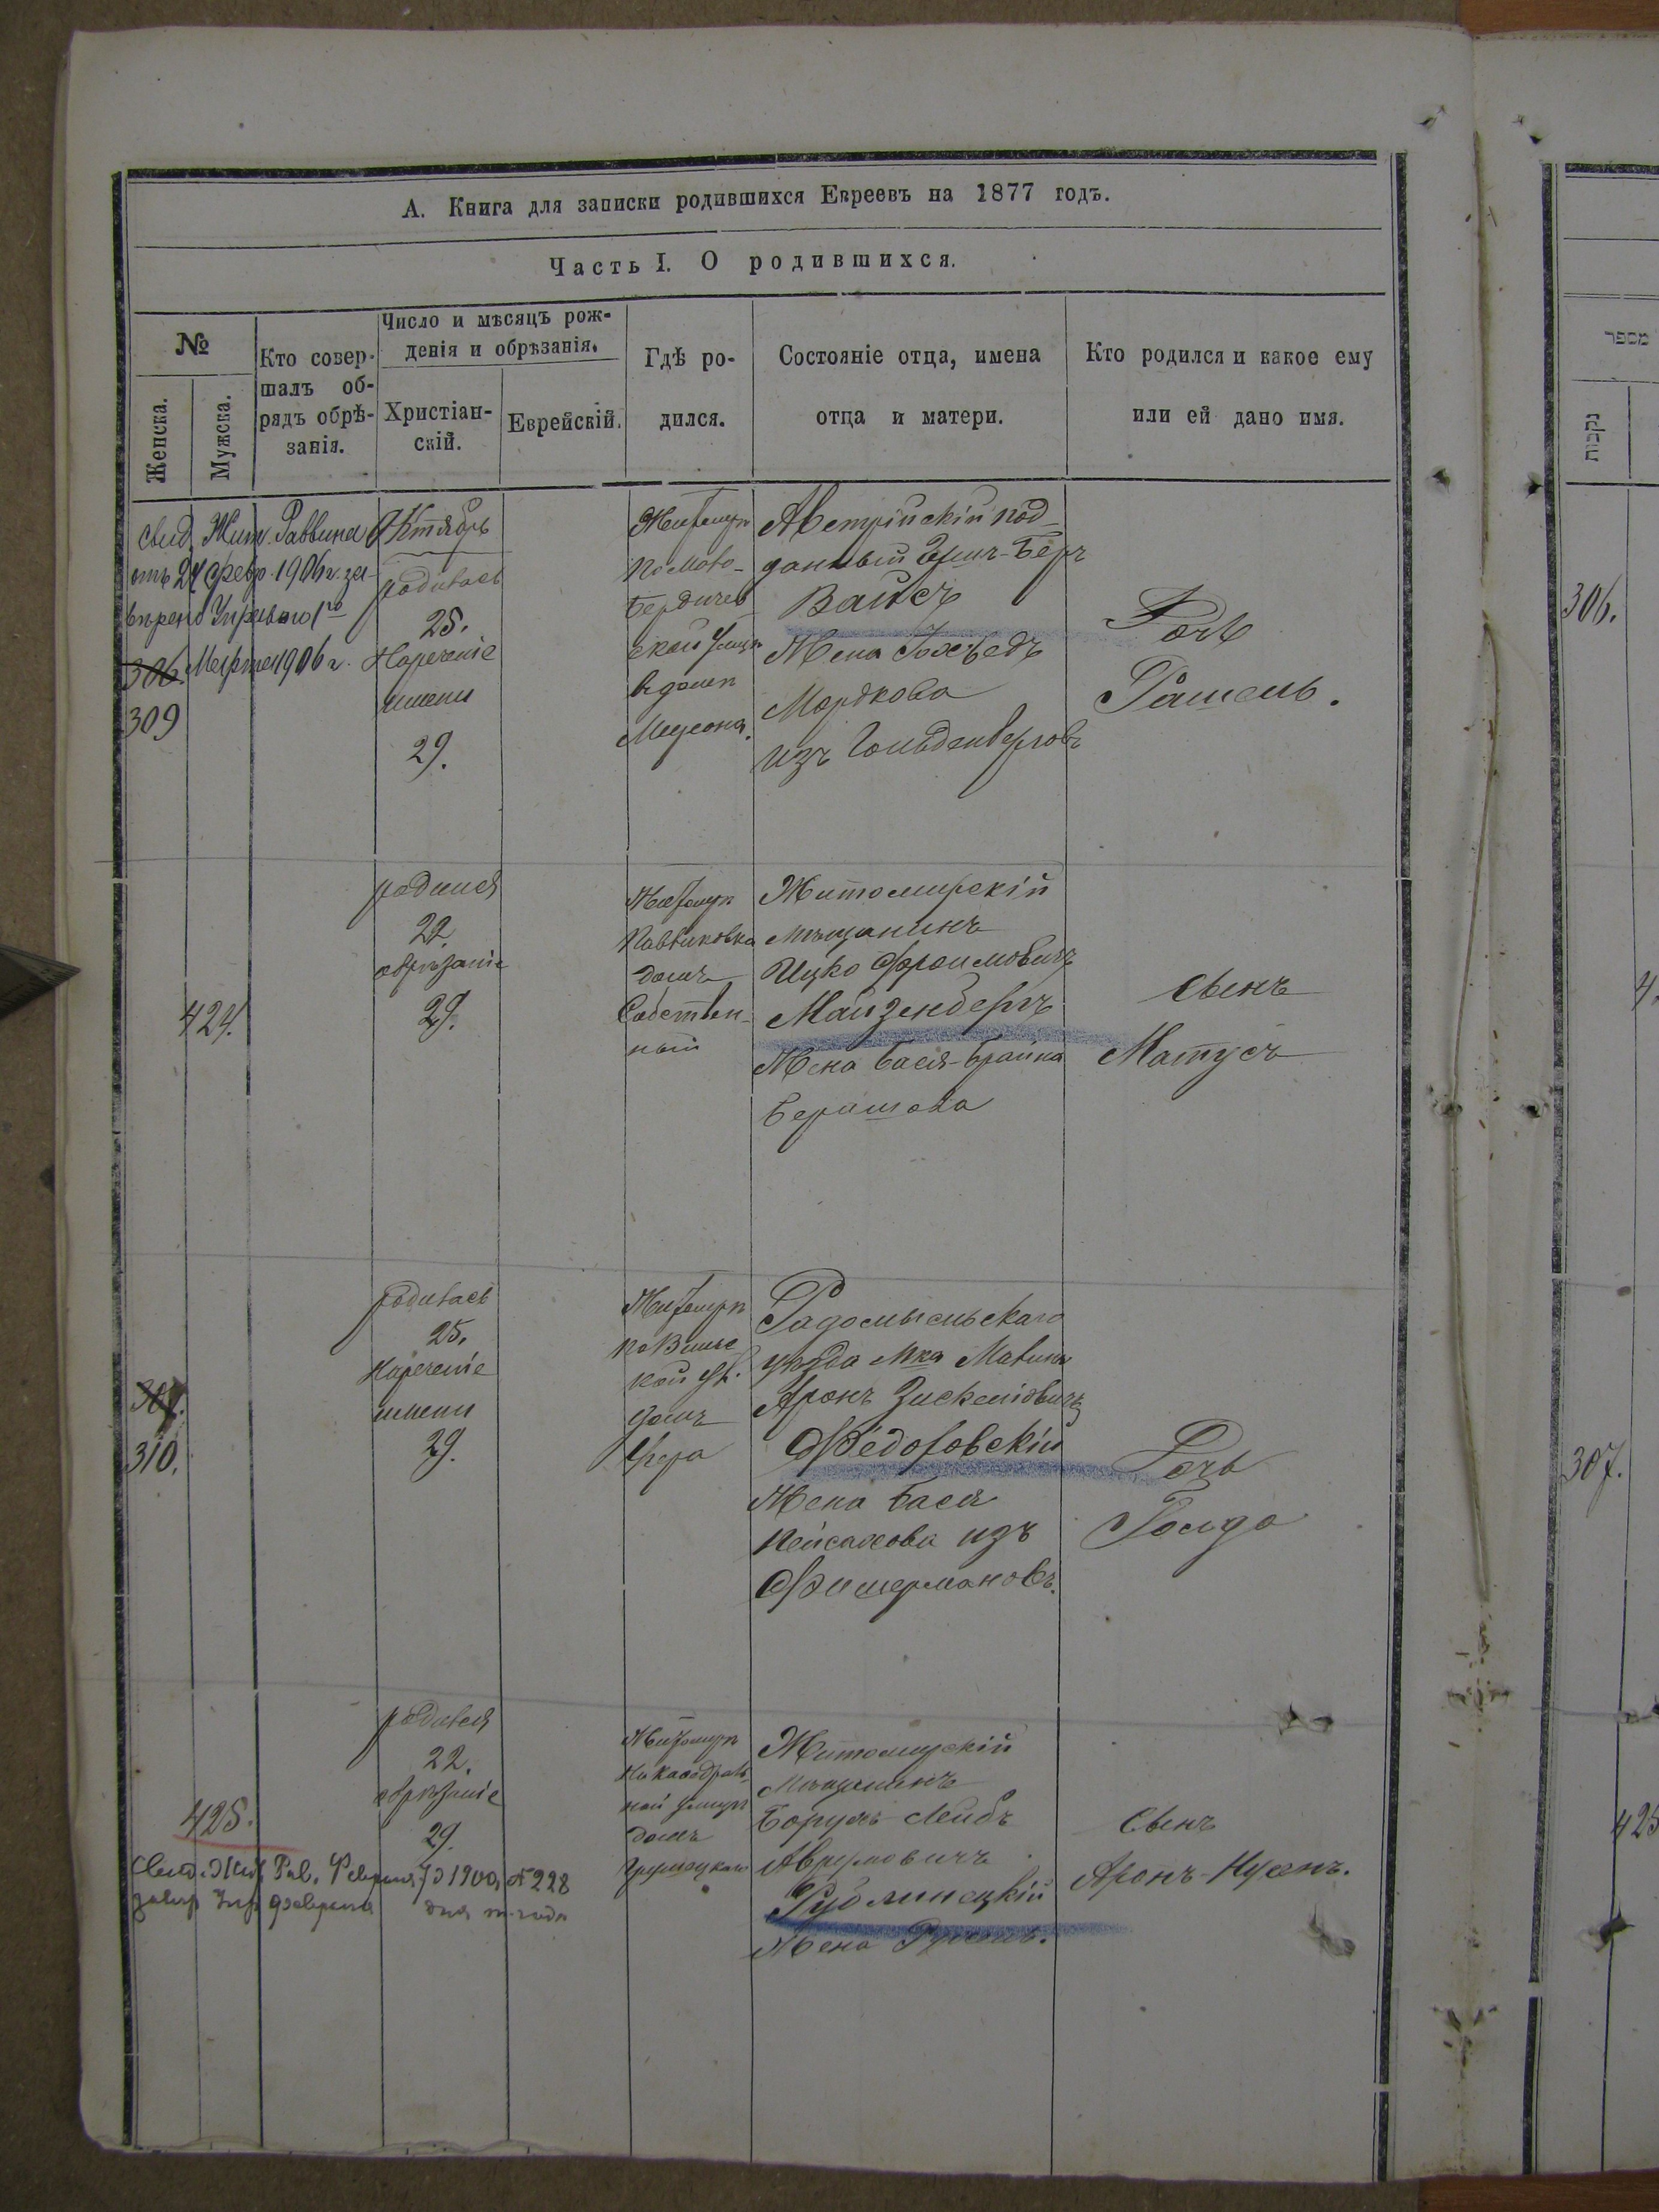 А. Книга для записки родившихся Евреевъ на 1877 годъ.
Часть I. О родившихся.
№
Женска.
Мужска.
Кто совер-
шалъ об-
рядъ обрѣ-
занія.
Число и мѣсяцъ рож-
денія и обрѣзанія.
Христіан-
скій.
Еврейскій.
Гдѣ ро-
дился.
Состояніе отца, имена
отца и матери.
Кто родился и какое ему
или ей дано имя.
свид. Жит. Раввина
отъ 24 февр. 1906 г. за-
306. Марта 1906 г.
309
Октябрь
родилась
25.
Нареченіе
имени
29.
Житомиръ
по Мало-
Бердичев
ской улицѣ
въ домѣ
Австрійскій под-
данный Беръ
Вайсъ
Жена Іохведъ
Мордкова
изъ Гольденберговъ
Дочь
Рашель.
424.
родился
22.
обрѣзаніе
29.
Житомиръ
Павликовка
домъ
Собствен-
ный
Житомирскій
мѣщанинъ
Ицко Фроимовичъ
Майзенбергъ
Жена Бася-Брайна
Берашова
Сынъ
Матусъ
307.
310.
родилась
25.
Нареченіе
имени
29.
Житомиръ
по Вильс
кой ул.
домъ
Радомысльскаго
уѣзда Мка Малина
Аронъ Зискелiовичъ
Федоровскій
Жена Бася
Пейсахова изъ
Фишермановъ.
Дочь
Голда
425.
родился
22.
обрѣзаніе
29.
Житомиръ
на Каѳедраль-
ной улицѣ
домъ
Житомирскій
мѣщанинъ
Борухъ-Лейбъ
Аврумовичъ
Рудминецкій
Жена Рухель.
Сынъ
Аронъ-Нусенъ.
Свид. Жит. Рав. Февраля 1900 № 228
февраля дня т. года
מספר
נקבות
306.
307.
425